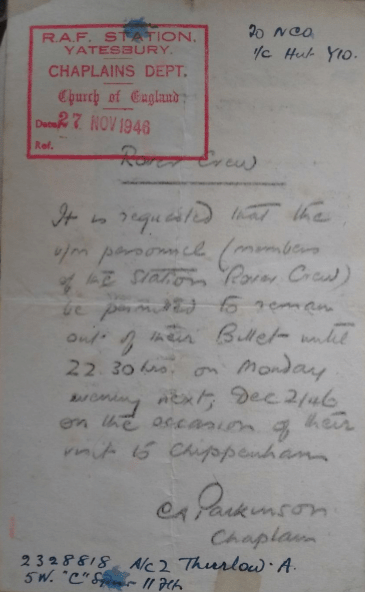 R.A.F. STATION,
YATESBURY.
CHAPLAINS DEPT.
Church of England
Date 27 NOV 1946
Ref.
To NCO
i/c Hut Y10.
Rover Crew
It is requested that the
u/m personnel (members
of the Station Rover Crew)
be permitted to remain
out of their Billet until
22.30 hrs. on Monday
evening next, Dec 2/46
on the occasion of their
visit to Chippenham
CA Parkinson
Chaplain
2328818 A/C2 Thurlow. A.
5W. "C"